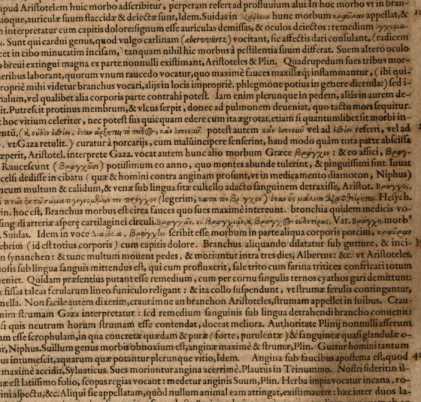 apud Aristotelem huic morbo adscribitur, perperam refert ad profluuium alui In hoc morbo vt in bran-
oque, auriculæ suum flaccidæ & deiectæ sunt, Idem. Suidas in hunc morbum appellat, &
interpretatur cum capitis dolore signum esse auriculas demissas, & oculos deiectos: remedium
Sunt qui cardui genus, quod vulgo carlinam vocitent, sic affectis dari consulant, (radicem
et in cibo minutatim incisam,) tanquam nihil hic morbus à pestilentia suum differat. Suem altero oculo
breui extingui magna ex parte nonnulli existimant, Aristoteles & Plin. Quadrupedum sues tribus mor-
eribus laborant, quorum vnum raucedo vocatur, quo maximè fauces maxillæq; inflammantur, ( ibi qui-
propriè mihi videtur branchus vocari, alijs in locis impropriè. phlegmone potius in genere dicenda:) sed i-
olum, vel qualibet alia corporis parte contrahi potest. Iam enim plerunque in pedem, aliâs in aurem de-
it. Putrescit protinus membrum, & vlcus serpit, donec ad pulmonem deueniat, quo tacto mors sequitur.
hoc vitium celeriter, nec potest sus quicquam edere cum ita ægrotat, etiam si quantumlibet sit morbi in-
potest autem vel ad referri, vel ad
vt Gaza retulit.) curatur à porcarijs, cum malum incipere senserint, haud modo quàm tota parte abscissa
perit, Aristotel. interprete Gaza. vocat autem hunc alio morbum Græcè & eo affici,
Raucescunt potissimum eo anno, quo montes abundè tulerint, & pinguissimi sint. Iuuat
celsi dedisse in cibatu ( quæ & homini contra anginam prosunt, vt in medicamento dianoton, Niphus)
ncum multum & calidum, & venæ sub lingua sitæ cultello adacto sanguinem detraxisse, Aristot.
(legerim, Hesych.
in, hoc est, Branchus morbus est circa fauces quo sues maximè intereunt. bronchia quidem medici vo-
ing di arteriæ asperæ cartilaginei circuli. Var. morb'
Suidas. Idem in voce scribit esse morbum in parte aliqua corporis porcini,
ebrim (id est totius corporis) cum capitis dolore. Branchus aliquando dilatatur sub gutture, & inci-
n synanchen: & tunc multum mouent pedes, & moriuntur intra tres dies, Albertus: &c. vt Aristoteles.
osis sub lingua sanguis mittendus est, qui cum profluxerit, sale trito cum farina tritices confricari totum
eniet. Quidam præsentius putant esse remedium, cum per cornu singulis ternos cyathos gari demittunt:
e fissas taleas ferularum lineo funiculo religant : & ita collo suspendunt, vt strumæ ferulis contingantur,
nella. Non facile autem dixerim, causéne an branchon Aristoteles, strumam appellet in suibus. Crau-
im strumam Gaza interpretatur : sed remedium sanguinis sub lingua detrahendi brancho conuenit:
si quis neutrum horum strumam esse contendat, doceat meliora. Authoritate Plinij nonnulli asserunt
am esse scrophulam, in qua concreta quædam & pura ( forte, purulenta ) & sanguinea quasi glandulæ o-
ur, Niphus. Suillum genus morbis obnoxium est, anginæ maximè & strumæ, Plin. Guttur homini tantum
us intumescit, aquarum quæ potantur plerunque vitio, Idem. Angina sub faucibus apostema est, quod
maximè accidit, Syluaticus. Sues moriuntur angina acerrimè. Plautus in Trinummo. Nostri sideritin il-
æ est latissimo folio, scopas regias vocant: medetur anginis Suum, Plin. Herba impia vocatur incana, ro-
ini aspectu, &c. Aliqui sic appellatam, quòd nullum animal eam attingat, existimauere: hæc inter duos la-